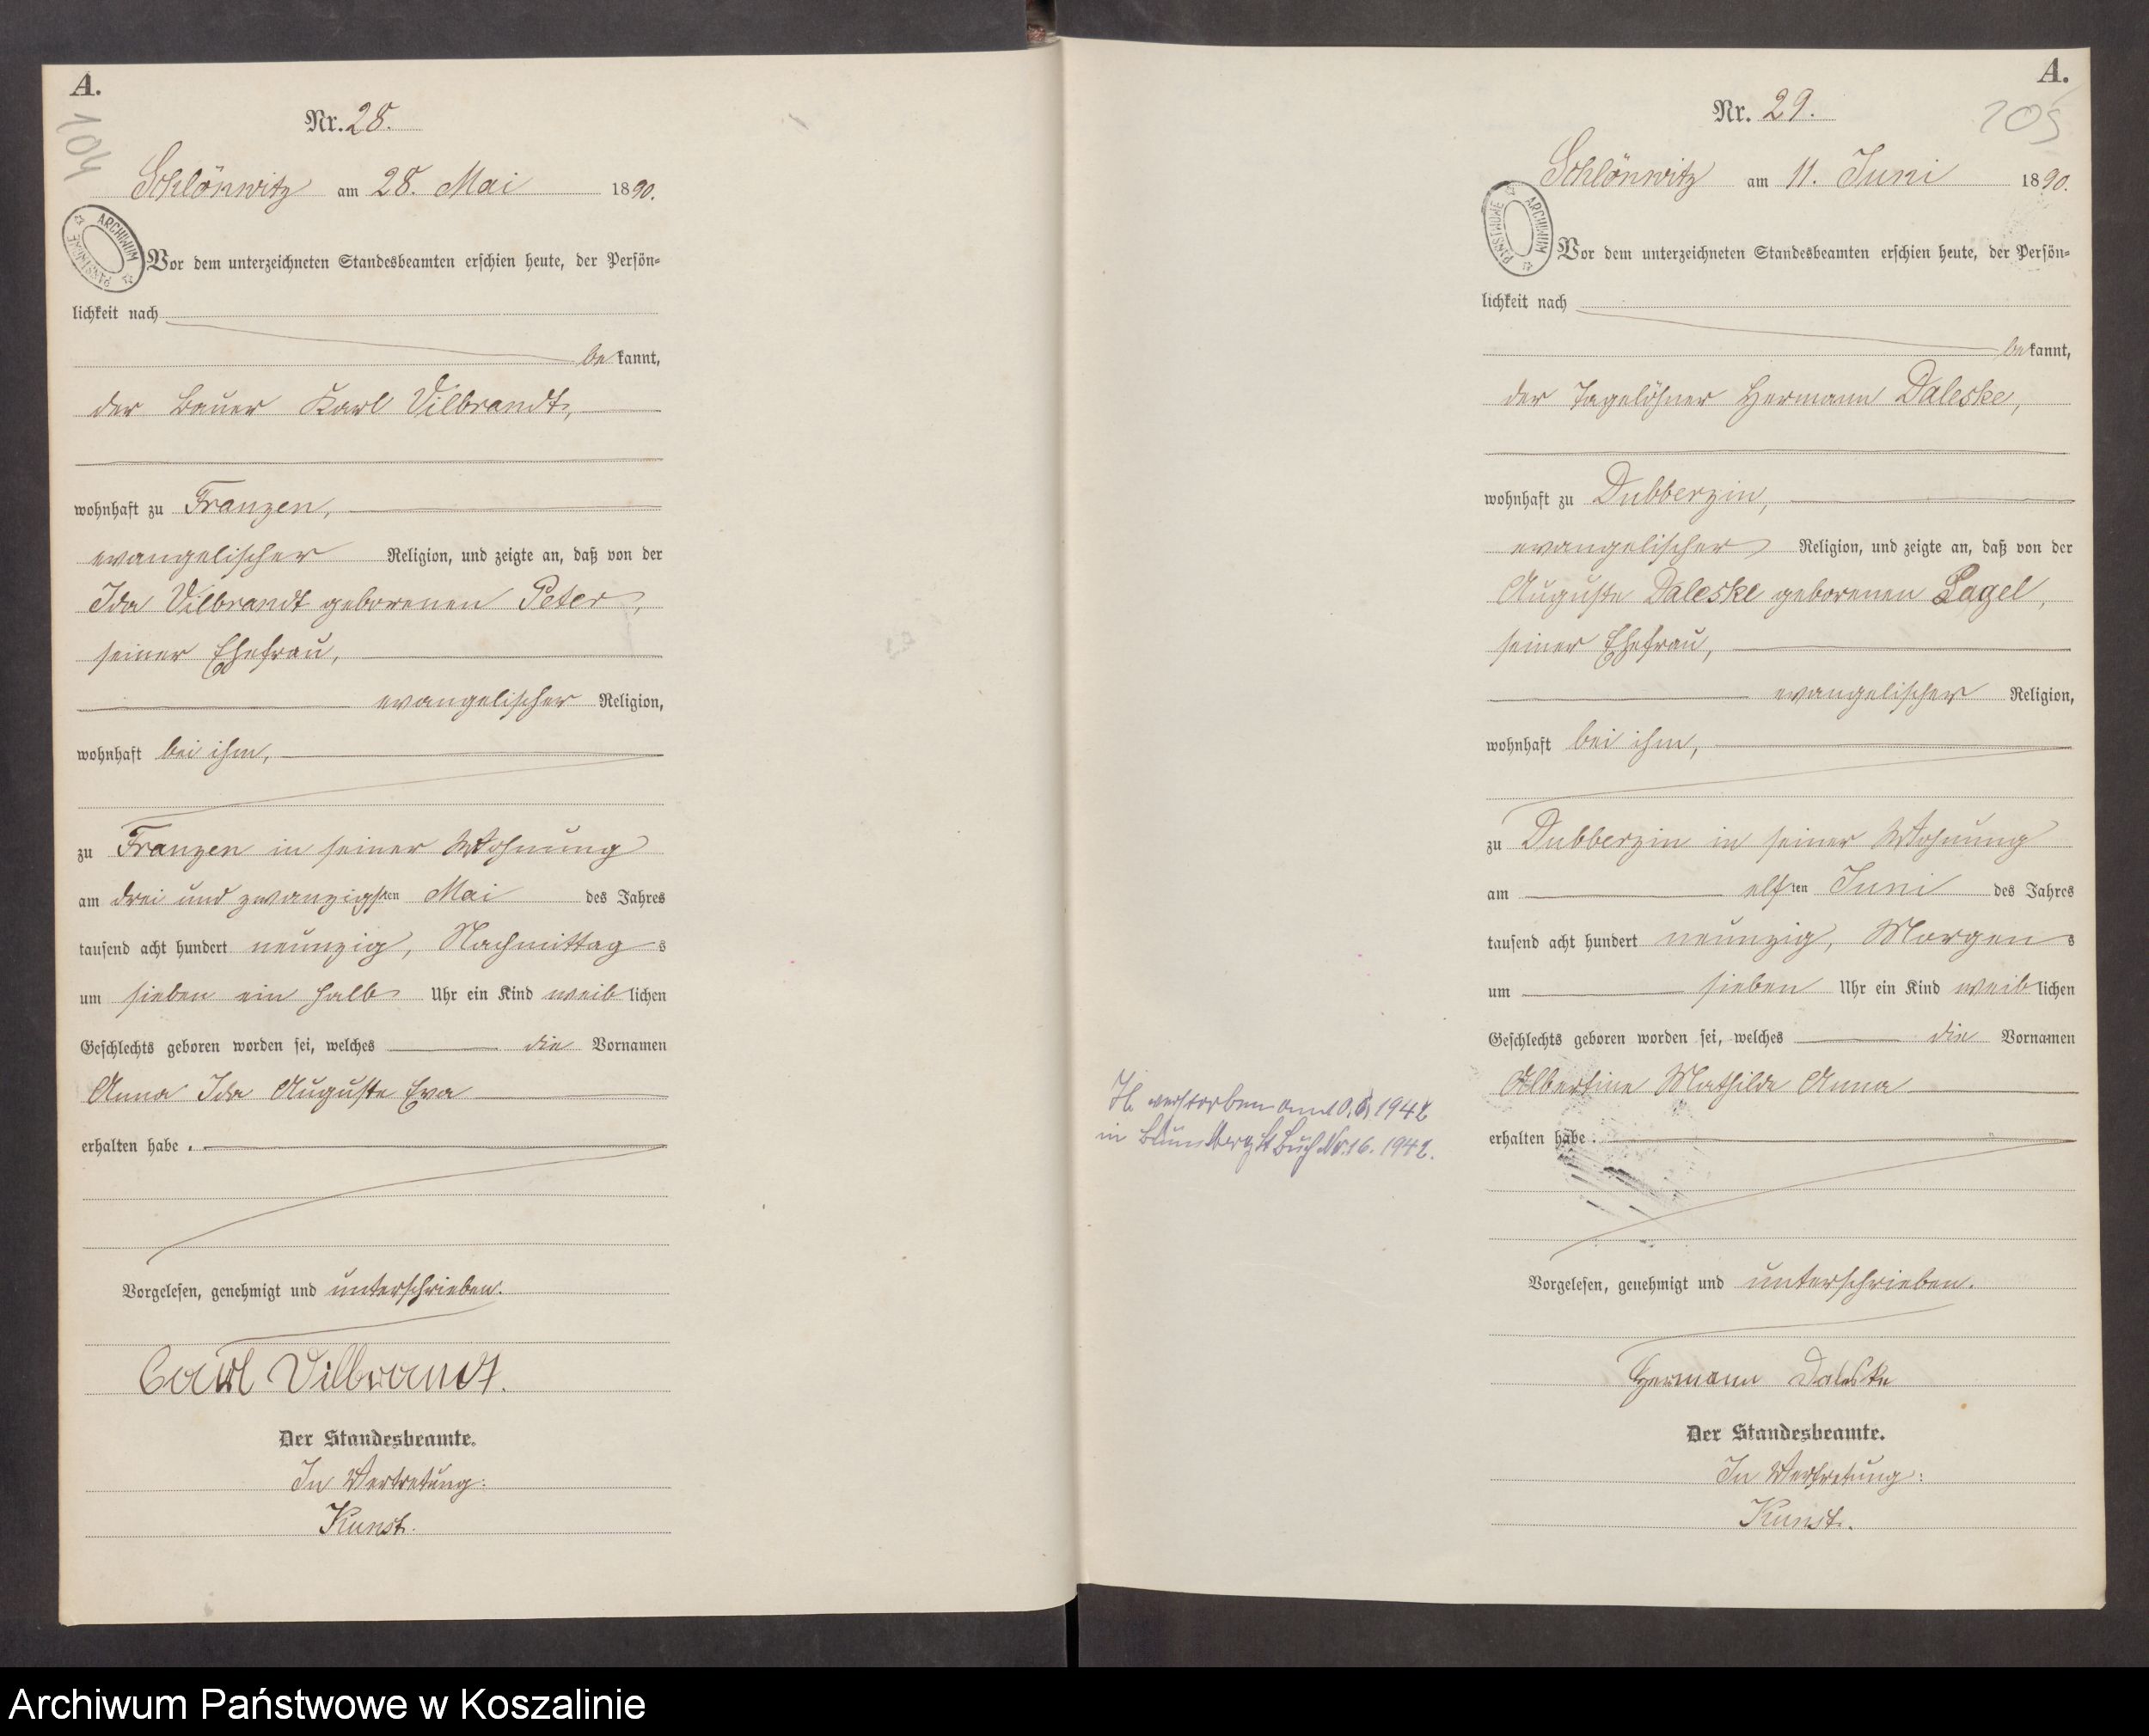 A.
104
Nr. 28.
Schlönwitz am 28. Mai 1890.
ARCHIWUM PAŃSTWOWE
Vor dem unterzeichneten Standesbeamten erschien heute, der Persön=
lichkeit nach
bekannt,
der Bauer Karl Vilbrandt,
wohnhaft zu Franzen,
evangelischer Religion, und zeigte an, daß von der
Ida Vilbrandt geborenen Peter,
seiner Ehefrau,
evangelischer Religion,
wohnhaft bei ihm,
zu Franzen in seiner Wohnung
am drei und zwanzigsten Mai des Jahres
tausend acht hundert neunzig, Nachmittags
um sieben ein halb Uhr ein Kind weiblichen
Geschlechts geboren worden sei, welches die Vornamen
Anna Ida Auguste Eva
erhalten habe.
Vorgelesen, genehmigt und unterschrieben.
Carl Vilbrandt.
Der Standesbeamte.
In Vertretung:
Kunst.
A.
105
Nr. 29.
Schlönwitz am 11. Juni 1890.
ARCHIWUM PAŃSTWOWE
Vor dem unterzeichneten Standesbeamten erschien heute, der Persön=
lichkeit nach
bekannt,
der Tagelöhner Hermann Daleske,
wohnhaft zu Dubberzin,
evangelischer Religion, und zeigte an, daß von der
Auguste Daleske geborenen Lagel,
seiner Ehefrau,
evangelischer Religion,
wohnhaft bei ihm,
zu Dubberzin in seiner Wohnung
am elften Juni des Jahres
tausend acht hundert neunzig, Morgens
um sieben Uhr ein Kind weiblichen
Geschlechts geboren worden sei, welches die Vornamen
Albertine Mathilde Anna
erhalten habe.
verstorben am 1942
in Buch Nr. 16. 1942.
Vorgelesen, genehmigt und unterschrieben.
Hermann Daleske
Der Standesbeamte.
In Vertretung:
Kunst.
Archiwum Państwowe w Koszalinie